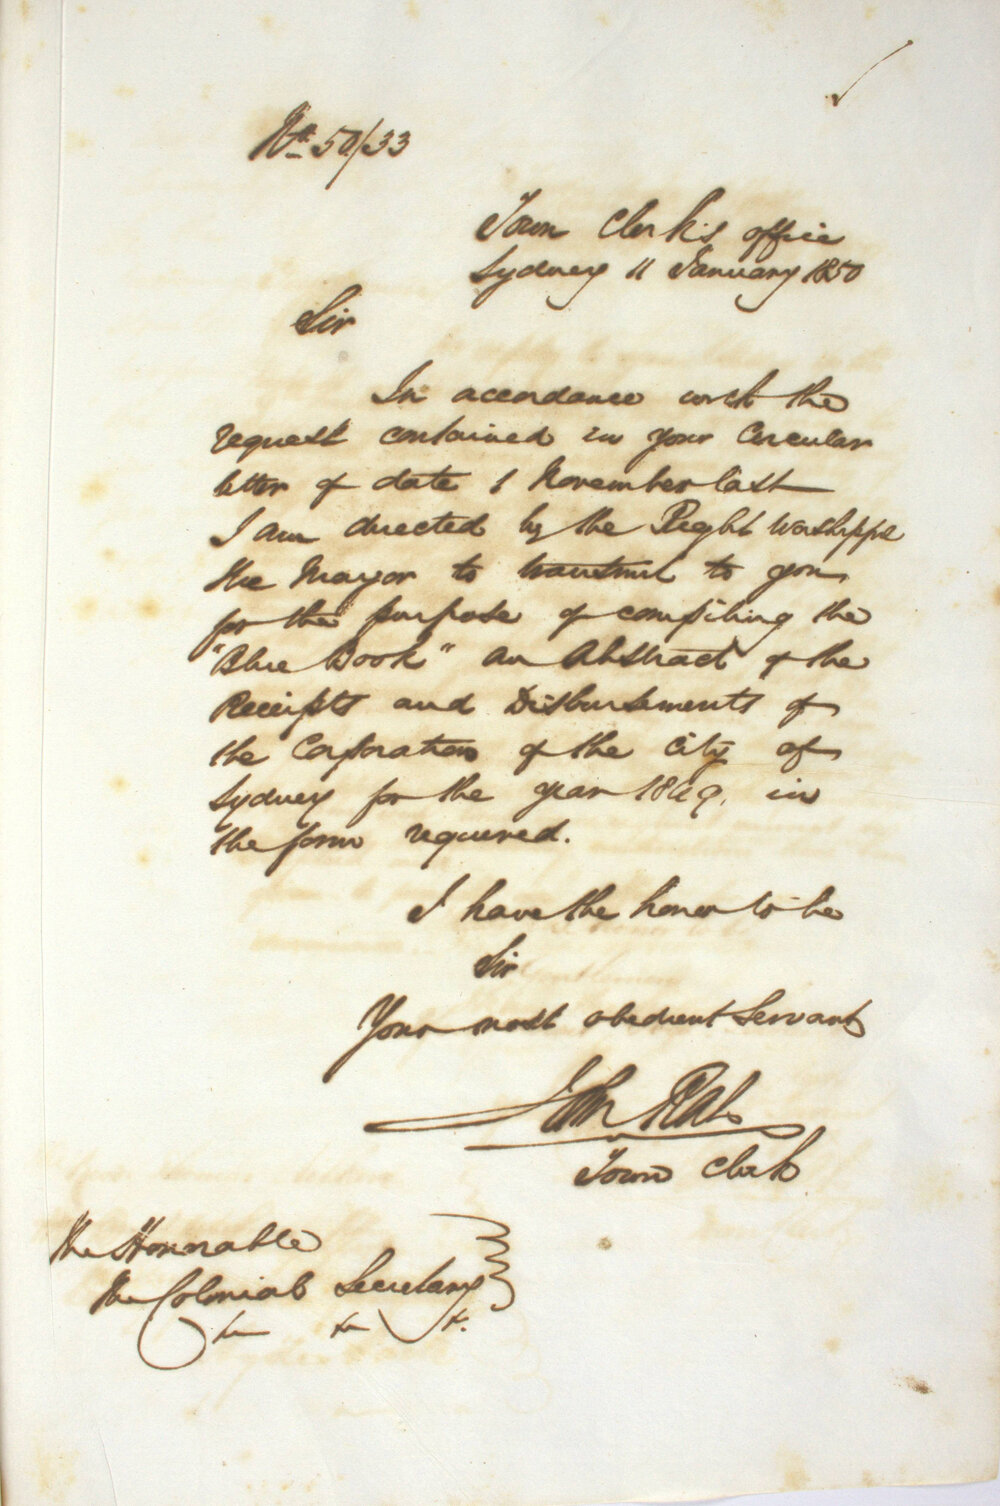 No. 50/33
Town Clerk's office
Sydney 11 January 1850
Sir
In accordance with the
request contained in your Circular
letter of date 1 November last
I am directed by the Right Worshipful
the Mayor to transmit to you
for the purpose of compiling the
"Blue Book" an Abstract of the
Receipts and Disbursements of
the Corporation of the City of
Sydney for the year 1849. in
the form required.
I have the honor to be
Sir
Your most obedient Servant
John
Town Clerk
The Honorable
The Colonial Secretary